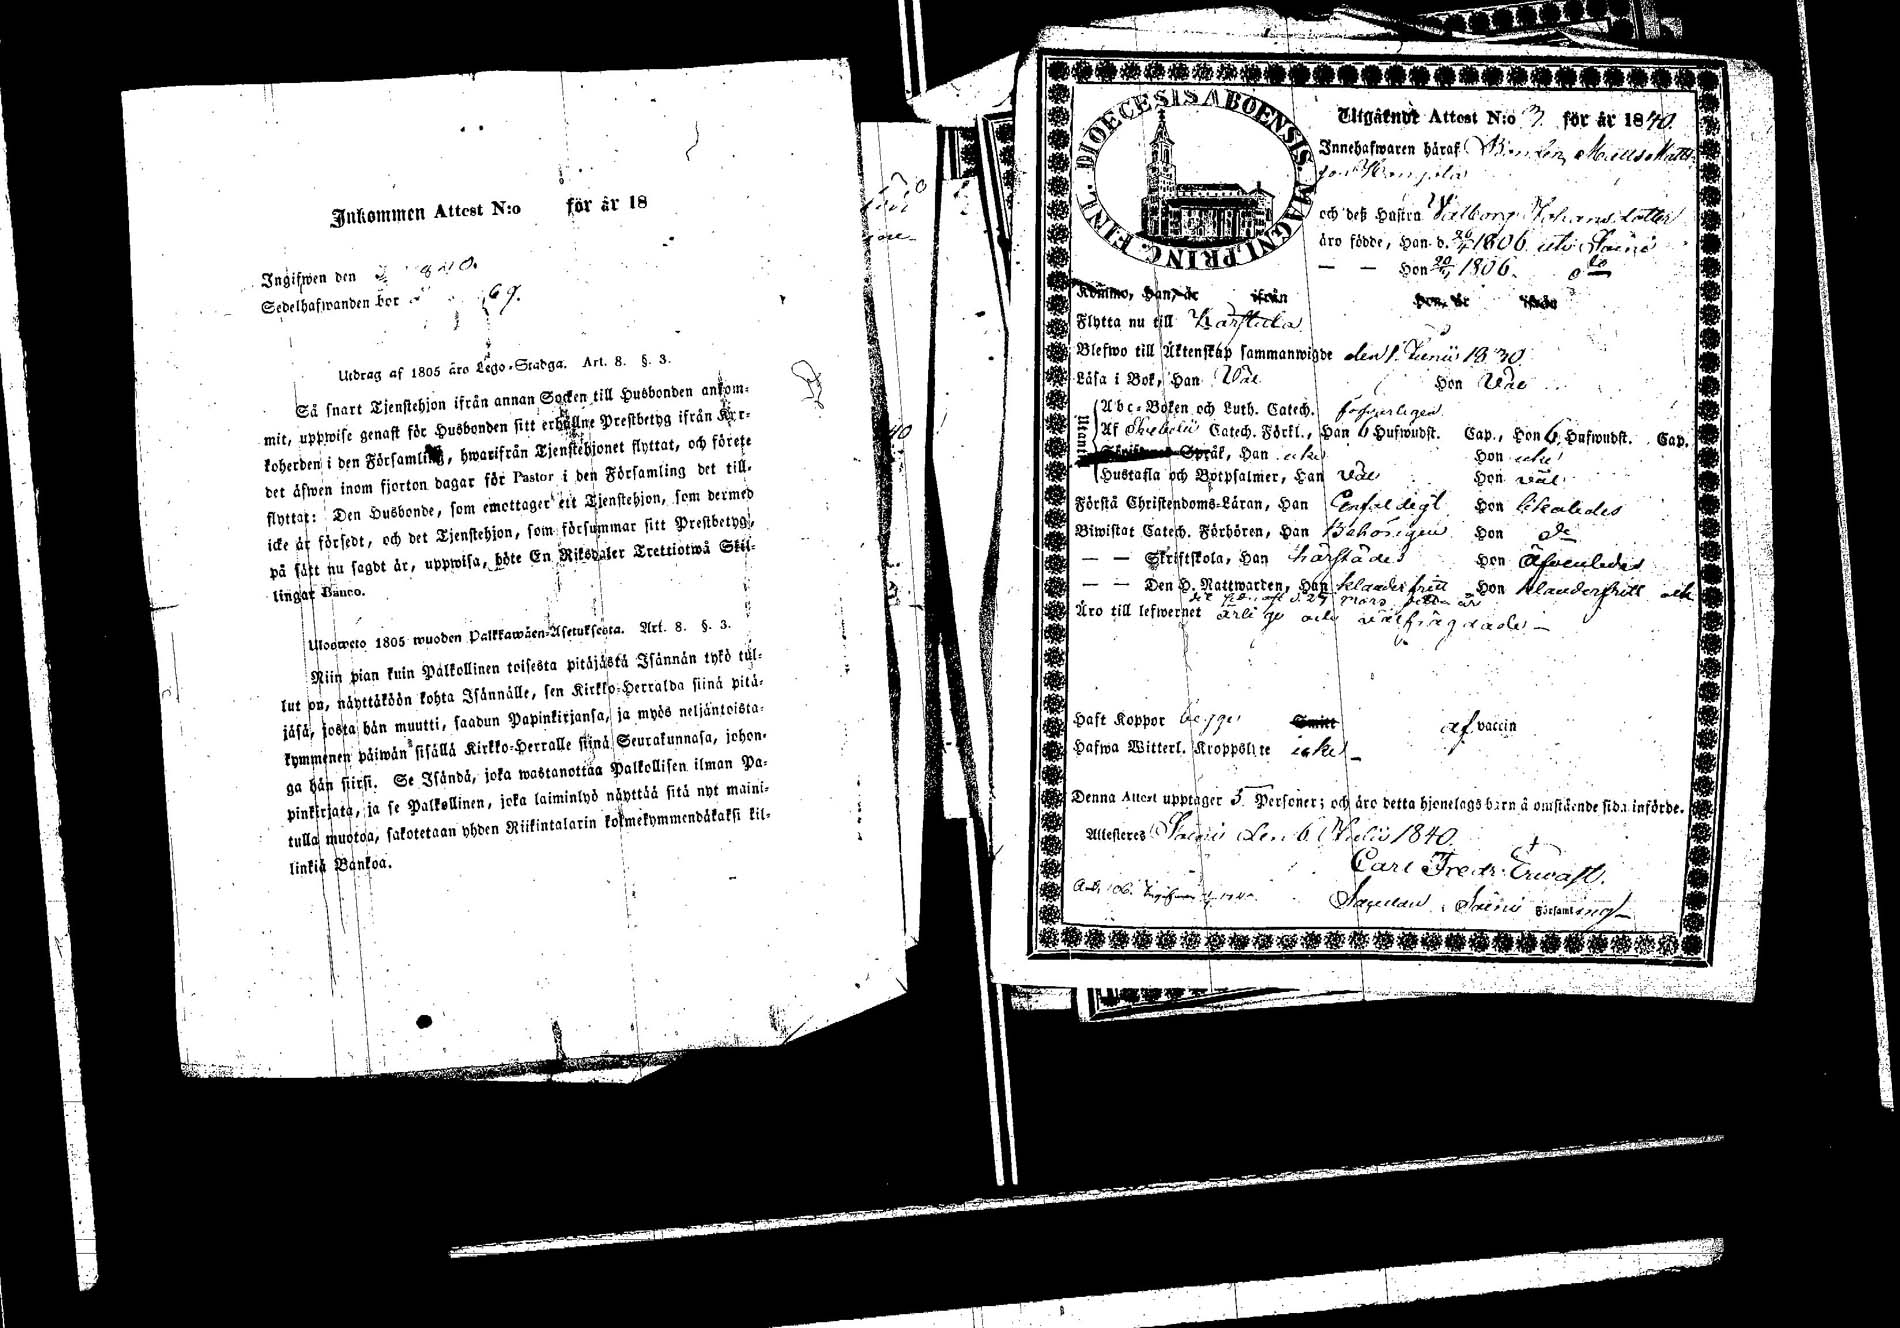 Inkommen Attest N:o för år 18
Ingifwen den
Sedelhafwanden bor 69.
Utdrag af 1805 åro Lego-Stadga. Art. 8. §. 3.
Så snart Tjenstehjon ifrån annan Socken till Husbonden ankom-
mit, uppwise genast för Husbonden sitt erhållne Prestbetyg ifrån Kyr-
koherden i den Församling, hwarifrån Tjenstehjonet flyttat, och förete
det äfwen inom fjorton dagar för Pastor i den Församling det till-
flyttat: Den Husbonde, som emottager ett Tjenstehjon, som dermed
icke är försedt, och det Tjenstehjon, som försummar sitt Prestbetyg,
på sätt nu sagdt är, uppwisa, böte En Riksdaler Trettiotwå Skil-
lingar Banco.
Uloswето 1805 wuoden Palkkawäen-Asetuksesta. Art. 8. §. 3.
Niin pian kuin Palkollinen toisesta pitäjästä Isännän tykö tul-
lut on, näyttäköön kohta Isännälle, sen Kirkko-Herralda siinä pitä-
jäsä, josta hän muutti, saadun Papinkirjansa, ja myös neljäntoista-
kymmenen päiwän sisällä Kirkko-Herralle siinä Seurakunnasa, johon-
ga hän siirsi. Se Isändä, joka wastanottaa Palkollisen ilman Pa-
pinkirjata, ja se Palkollinen, joka laiminlyö näyttää sitä nyt maini-
tulla muotoa, sakotetaan yhden Riikintalarin kolmekymmendäkaksi kil-
linkiä Bankoa.
DIOECESIS ABOENSIS. MAGNI. PRINC. FINL.
Utgående Attest N:o 3. för år 1840.
Innehafwaren häraf Bonden Matts Matts-
son
och deß Hustru Walborg Johansdotter
äro födde, Han d. 1806 uti
— — Hon 1806. do
Kommo, Han, är ifrån Hon, är ifrån
Flytta nu till Karstula
Blefwo till Äktenskap sammanwigde den 1. Junii 1830
Läsa i Bok, Han Väl Hon Väl
Utantil
Abc-Boken och Luth. Catech. försvarligen
Af Svebelii Catech. Förkl., Han 6 Hufwudst. Cap., Hon 6 Hufwudst. Cap.
Skriftenes Språk, Han icke Hon icke
Hustafla och Botpsalmer, Han väl Hon väl
Förstå Christendoms-Läran, Han Enfaldigt Hon likaledes
Biwistat Catech. Förhören, Han Behörigen Hon do
— — Skriftskola, Han härstädes Hon Äfvenledes
— — Den H. Nattwarden, Han klanderfritt Hon klanderfritt och
Äro till lefwernet ärlige och välfrägdade —
Haft Koppor begge Smitt af vaccin
Hafwa Witterl. Kroppslyte icke —
Denna Attest upptager 5 Personer; och äro detta hjonelags barn å omstående sida införde.
Attesteres den 6 Julii 1840.
Carl Fredr:
Församling